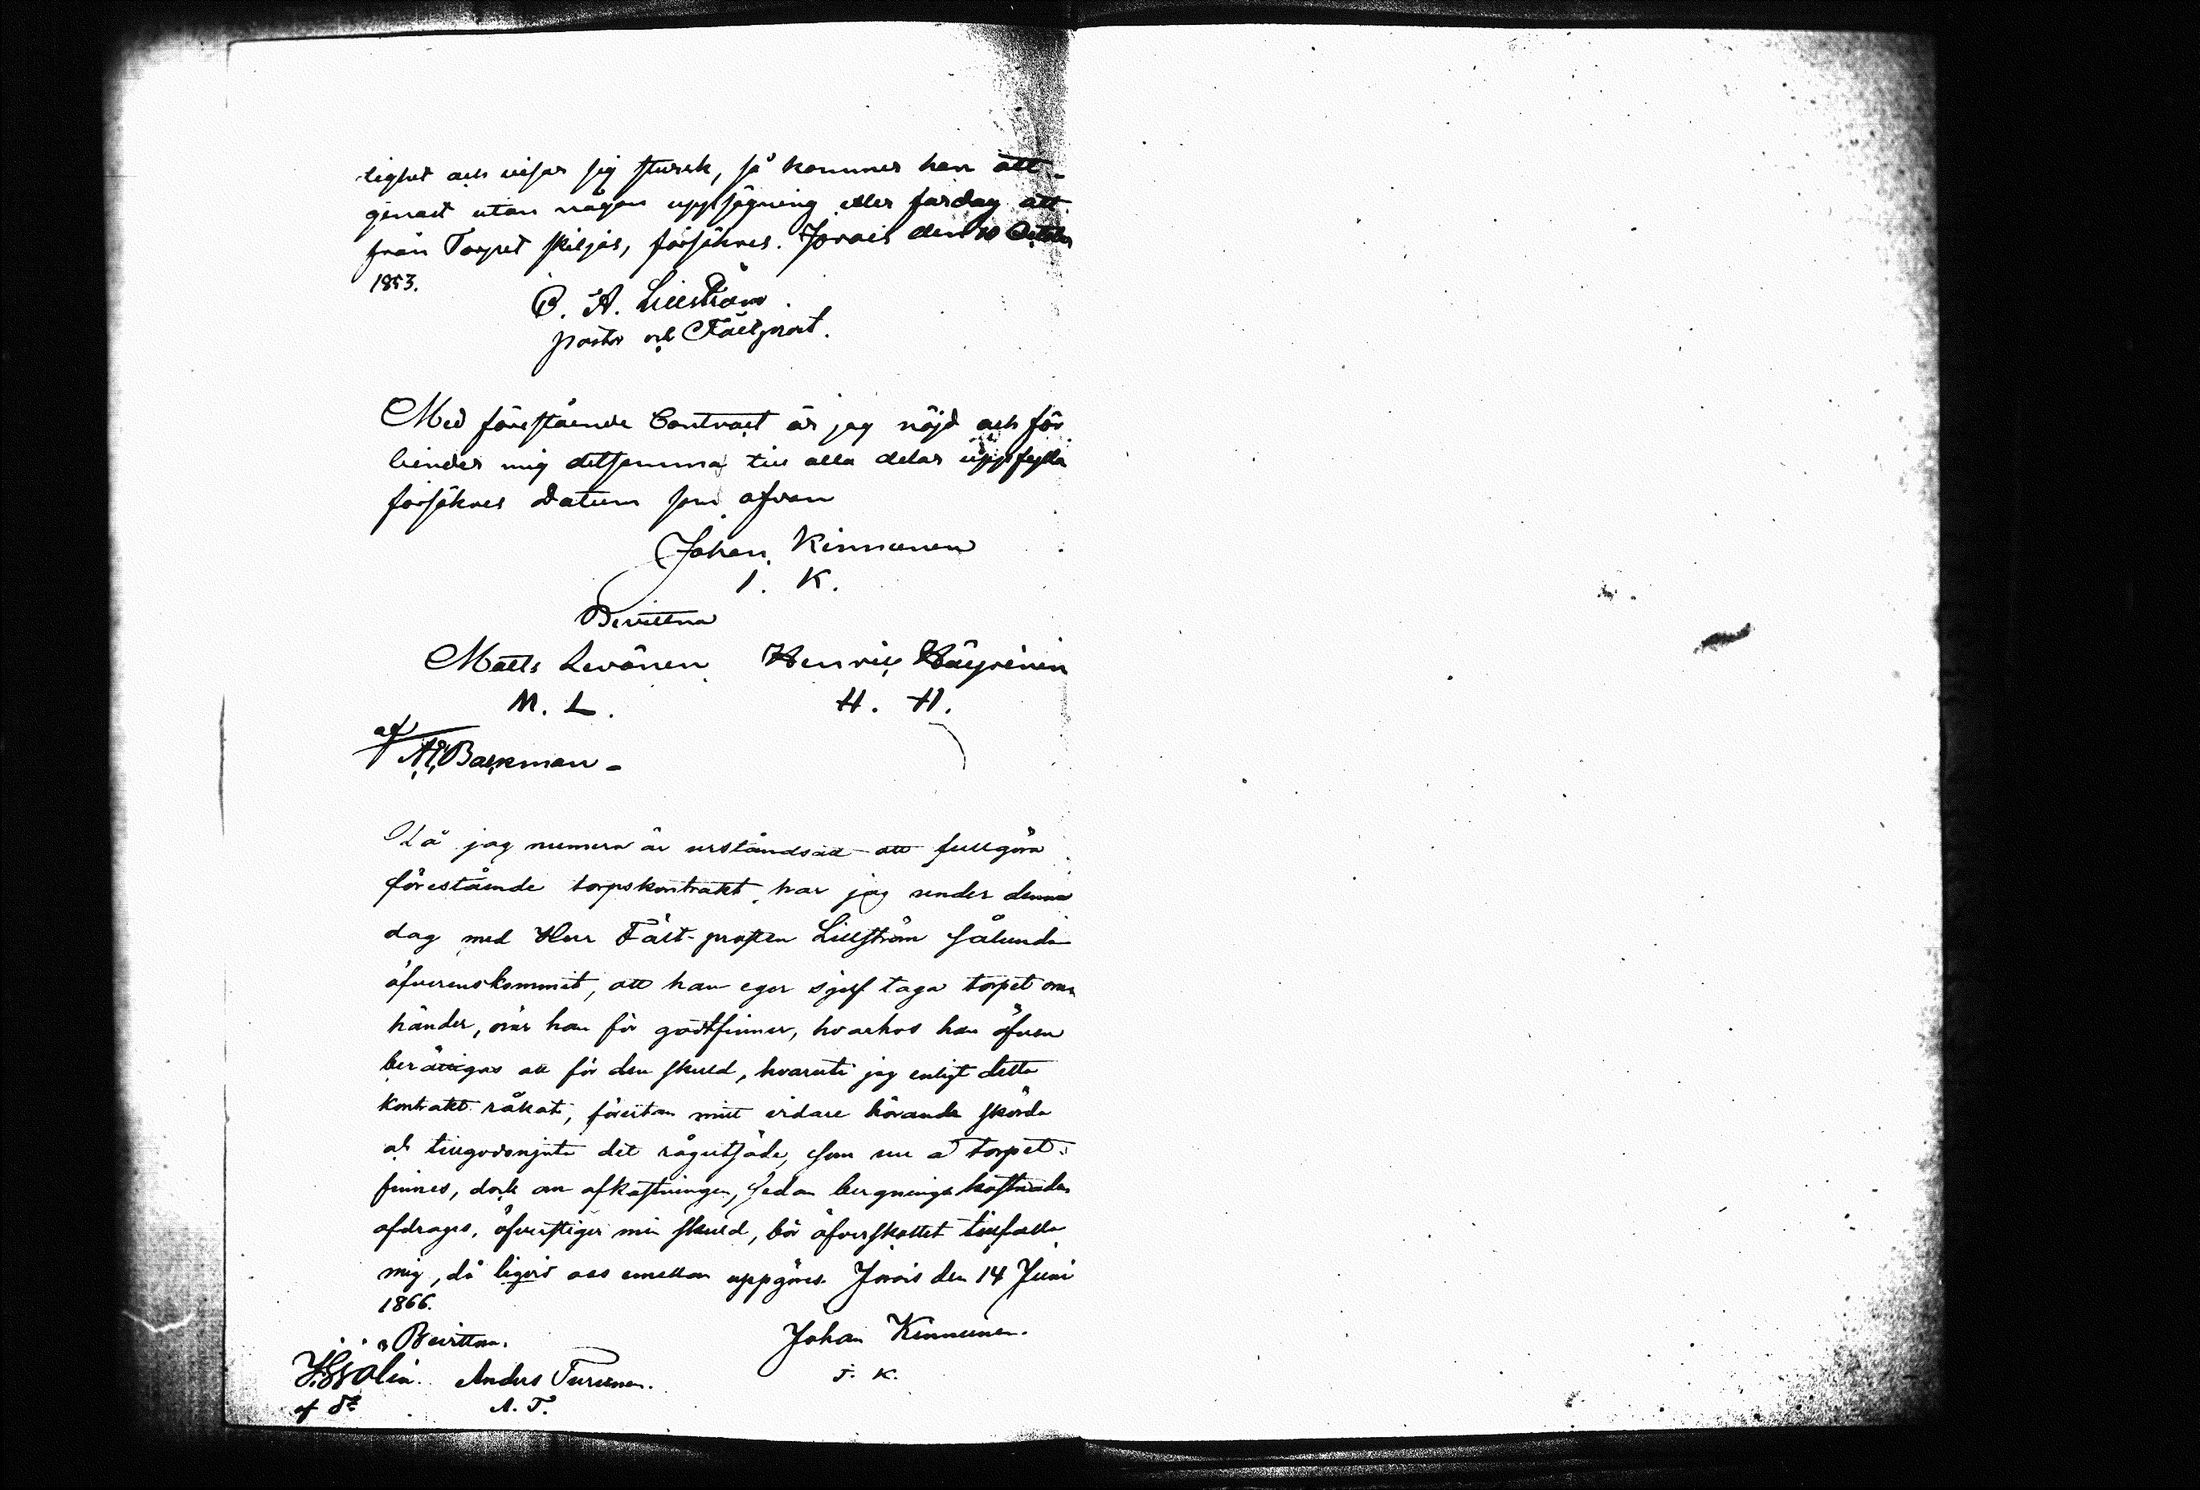 tighet och visar sig stursk, så kommer han att
genast utan någon uppsägning eller fardag att
från Torpet skiljas, försäkras. Jorois den 10 October
1853.
B. A. Lillström
pastor och Fältprost.
Med förestående Contract är jag nöjd och för
binder mig detsamma till alla delar uppfylla
försäkras Datum som ofvan
Johan Kinnunen
I. K.
Bevittna
Matts Levänen Henric Häyrinen
M. L. H. H.
af
Backman
Då jag numera är urståndsatt att fullgöra
förestående torpskontrakt, har jag under denna
dag med Herr Fält-prosten Lillström sålunda
öfverenskommit, att han eger sjelf taga torpet om
händer, när han för godtfinner, hvarhos han äfven
berättigas att för den skuld, hvaruti jag enligt detta
kontrakt råkat, förutan mitt vidare hörande skörda
och tillgodonjuta det rågutsäde, som nu å torpet
finnes, dock om afkastningen, sedan bergnings kostnaden
afdrages, öfverstiger min skuld, bör öfverskottet tillfalla
mig, då liqvid oss emellan uppgöres. Jorois den 14 Juni
1866.
Bevittna. Johan Kinnunen.
Anders Turunen. J. K.
af A. T.